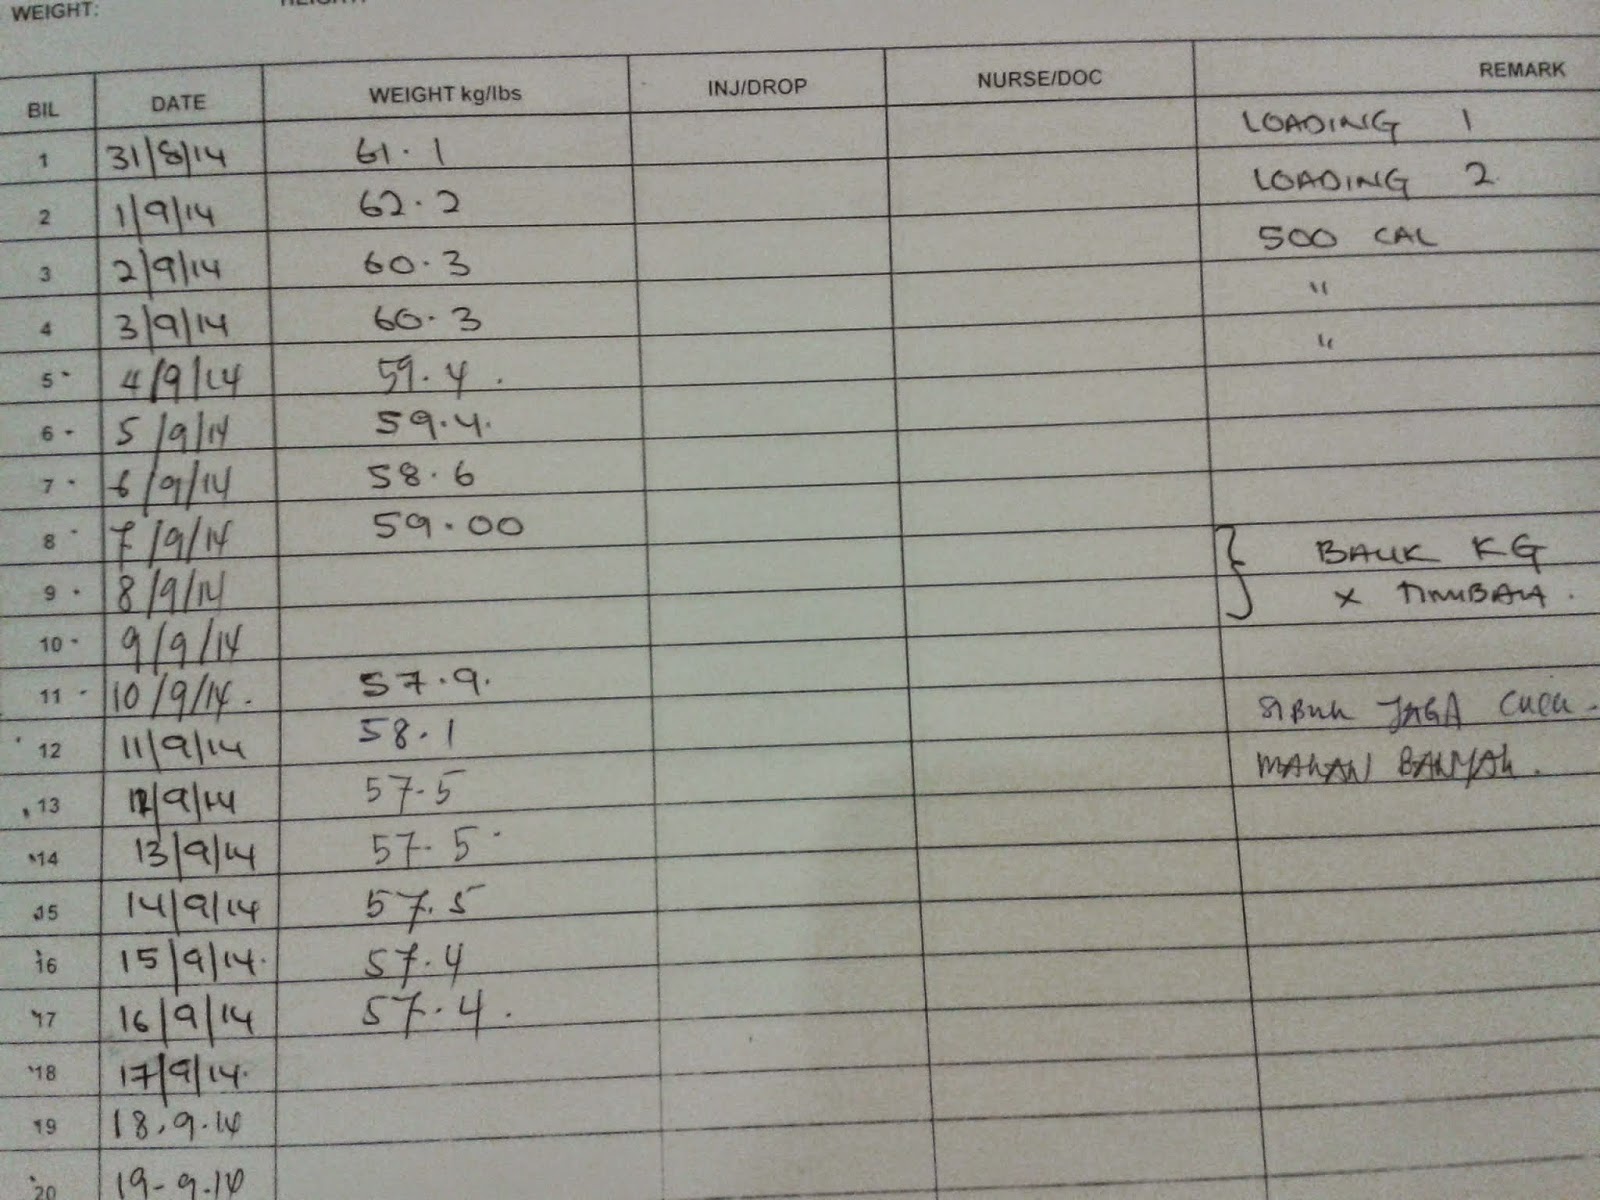 WEIGHT: HEIGHT:
BIL DATE WEIGHT kg/lbs INJ/DROP NURSE/DOC REMARK
1 31/8/14 61.1 LOADING 1
2 1/9/14 62.2 LOADING 2
3 2/9/14 60.3 500 CAL
4 3/9/14 60.3 "
5 4/9/14 59.4 "
6 5/9/14 59.4
7 6/9/14 58.6
8 7/9/14 59.00
9 8/9/14 BALIK KG
10 9/9/14 x TIMBANG
11 10/9/14 57.9
12 11/9/14 58.1 SIBUK JAGA CUCU
13 12/9/14 57.5 MAKAN BANYAK
14 13/9/14 57.5
15 14/9/14 57.5
16 15/9/14 57.4
17 16/9/14 57.4
18 17/9/14
19 18.9.14
20 19-9.14